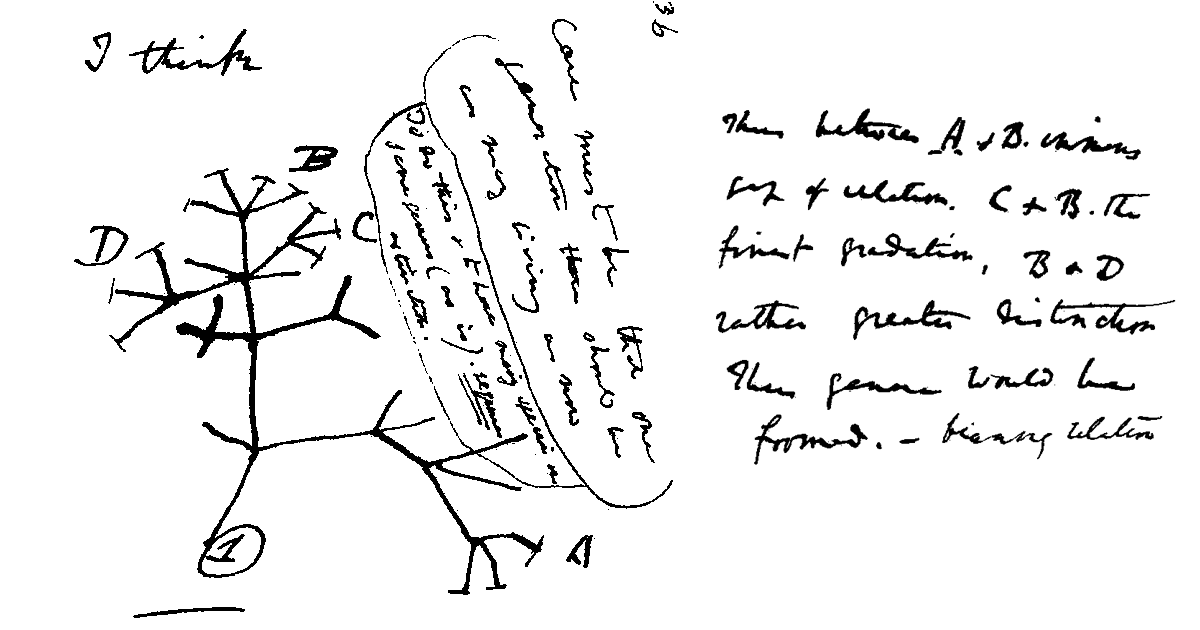 I think
36
Case must be that one
generation then should be
as many living as now
To do this & to have many species in
same genus (as is). requires
extinction.
B
C
D
A
1
Thus between A & B. immens
gap of relation. C & B. the
finest gradation, B & D
rather greater distinction
Thus genera would be
formed. — bearing relation